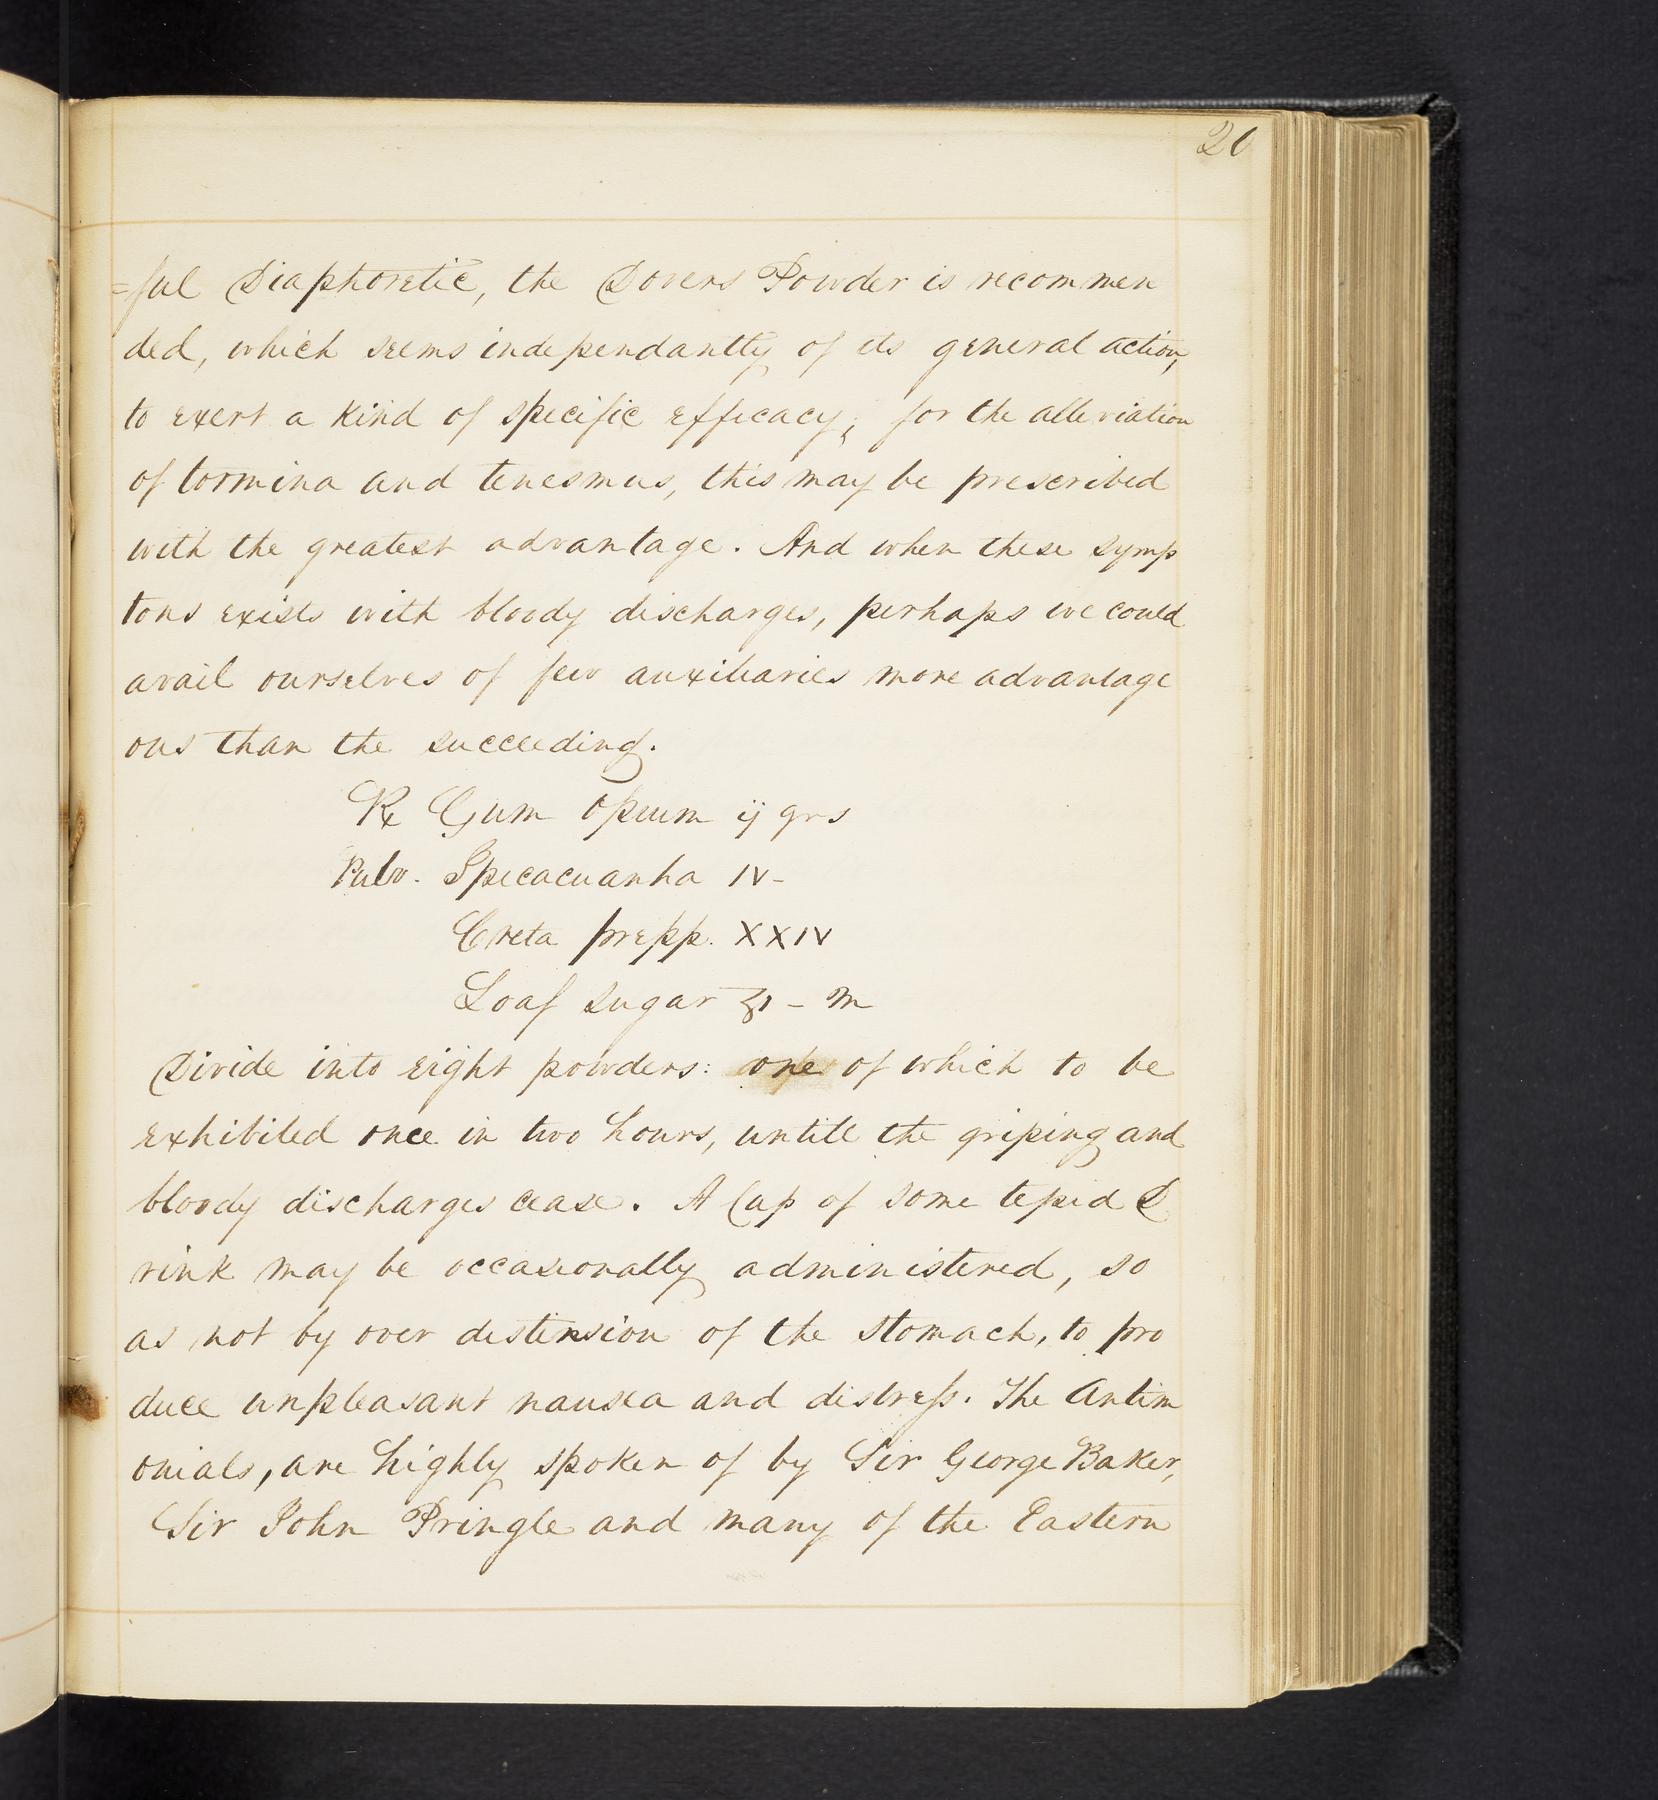 20
=ful Diaphoretic, the Dovers Powder is recommen
ded, which seems independantly of its general action,
to exert a kind of specific efficacy; for the alleviation
of tormina and tenesmus, this may be prescribed
with the greatest advantage. And when these symp
toms exists with bloody discharges, perhaps we could
avail ourselves of few auxiliaries more advantage
ous than the succeeding.
℞ Gum Opium ij grs
Pulv. Ipecacuanha IV-
Creta prepp. XXIV
Loaf sugar ʒı - m
Divide into eight powders: one of which to be
exhibited once in two hours, untill the griping and
bloody discharges cease. A Cup of some tepid D
rink may be occasionally administered, so
as not by over distension of the stomach, to pro
duce unpleasant nausea and distreſs. The Antim
onials, are highly spoken of by Sir George Baker,
Sir John Pringle and many of the Eastern